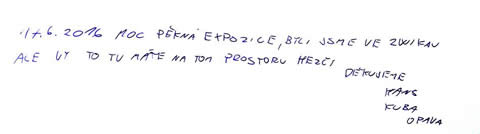 17.6.2016 MOC PĚKNÁ EXPOZICE, BYLI JSME VE ZWIKAU
ALE VY TO TU MÁTE NA TOM PROSTORU HEZČÍ
DĚKUJEME
HANS
KUBA
OPAVA